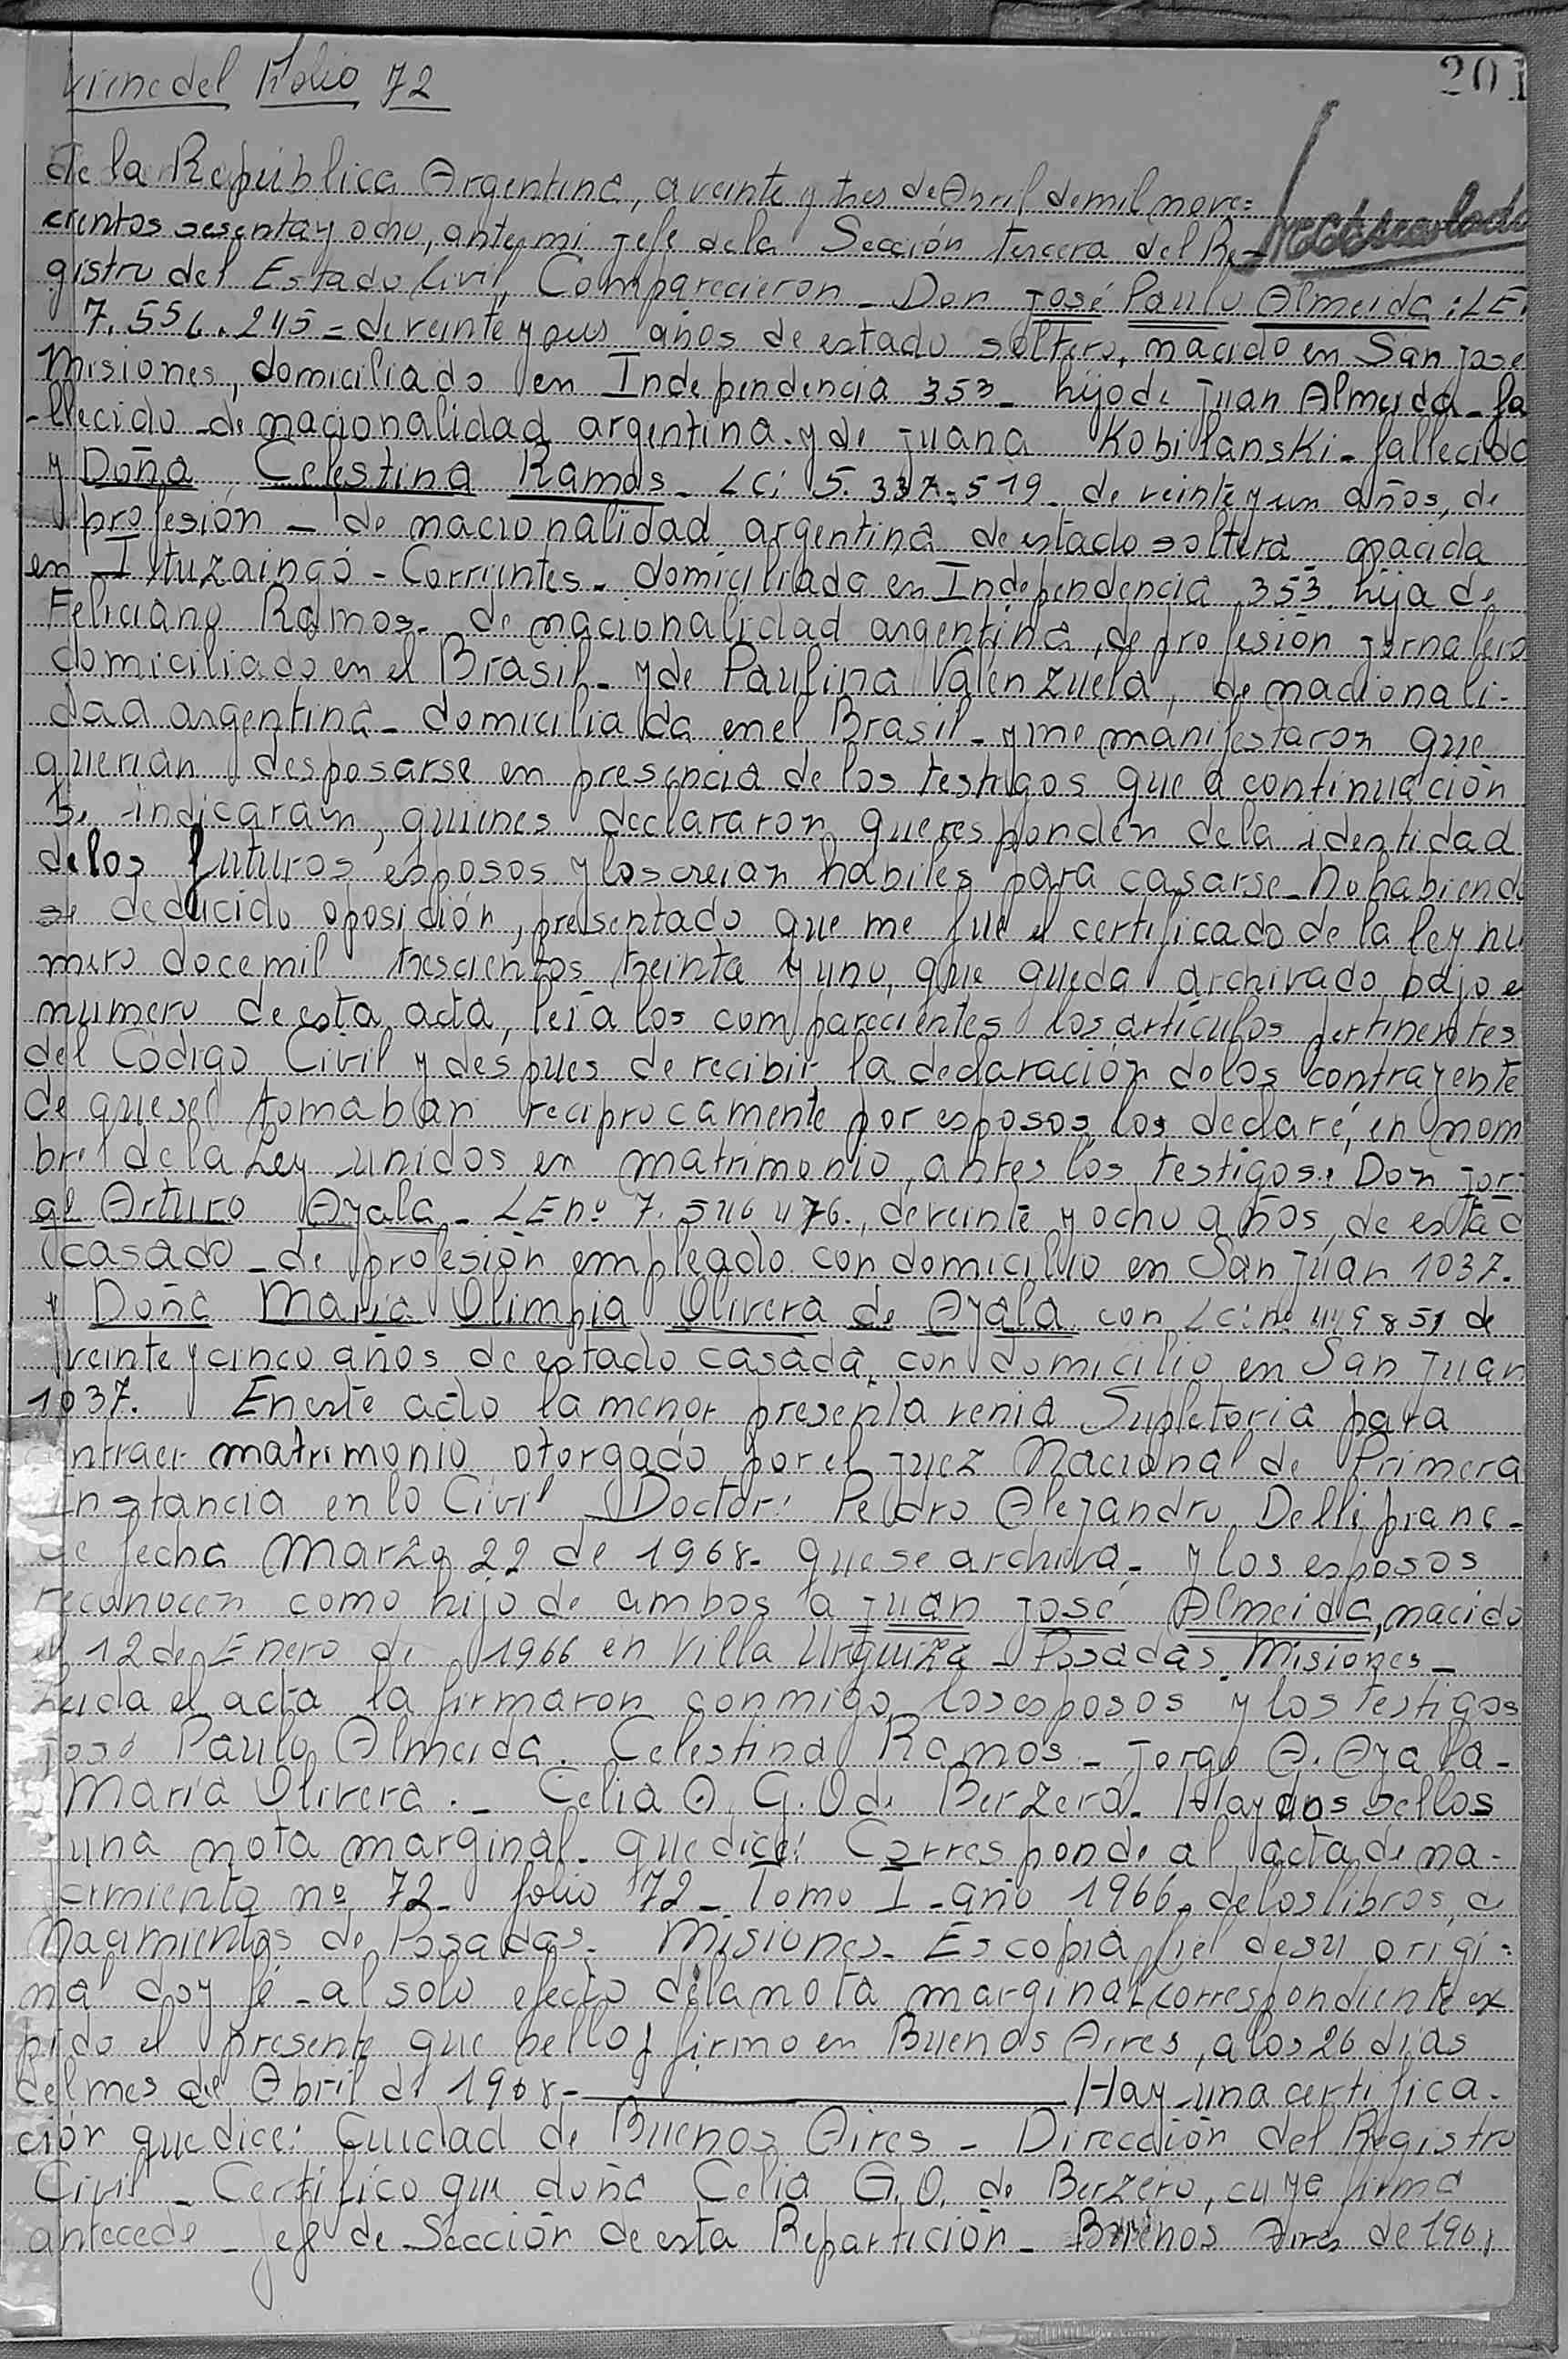 Viene del Folio 72
201
de la República Argentina, a veinte y tres de Abril de mil nove=
cientos sesenta y ocho, ante mi jefe de la Sección tercera del Re-
gistro del Estado Civil, Comparecieron - Don José Paulo Almeida: LE.
7.556.245 = de veinte y años de estado soltero, nacido en San José
Misiones, domiciliado en Independencia 353 - hijo de Juan Almeida - fa
-llecido - de nacionalidad argentina - y de Juana Kobilanski - fallecida
y Doña Celestina Ramos - LC: 5.337.519 - de veinte y un años, de
profesión - de nacionalidad argentina de estado soltera nacida
en Ituzaingó - Corrientes - domiciliada en Independencia 353 hija de
Feliciano Ramos - de nacionalidad argentina, de profesión jornalero
domiciliado en el Brasil - y de Paulina Valenzuela, de nacionali-
dad argentina - domiciliada en el Brasil - y me manifestaron que
querian desposarse en presencia de los testigos que a continuación
se indicaran, quienes declararon que responden de la identidad
de los futuros esposos y los creian habiles para casarse - No habiendo
se deducido oposición, presentado que me fué el certificado de la ley nu
mero doce mil trescientos treinta y uno, que queda archivado bajo e
numero de esta acta, leí a los comparecientes los artículos pertinentes
del Código Civil y despues de recibir la declaración de los contrayente
de que se tomaban reciprocamente por esposos, los declaré, en nom
bre de la Ley unidos en matrimonio, antes los testigos: Don Jor-
ge Arturo Ayala - LE nº 7.546 476., de veinte y ocho años, de estad
casado - de profesión empleado con domicilio en San Juan 1037.
y Doña Maria Olimpia Olivera de Ayala con LC: nº 449851 de
veinte y cinco años de estado casada, con domicilio en San Juan
1037. En este acto la menor presenta venia Supletoria para
ontraer matrimonio otorgado por el Juez Nacional de Primera
Instancia en lo Civil Doctor: Pedro Alejandro Dellipiane -
de fecha Marzo 22 de 1968 - que se archiva - y los esposos
reconocen como hijo de ambos a Juan José Almeida, nacido
el 12 de Enero de 1966 en Villa Urquiza - Posadas Misiones -
Leida el acta la firmaron conmigo, los esposos y los testigos
José Paulo Almeida. Celestina Ramos - Jorge A. Ayala -
María Olivera . - Celia A. G. O de Berzero - Hay dos sellos
y una nota marginal - que dice: Corresponde al acta de na-
cimiento nº 72 - folio 72 - Tomo I - año 1966 - de los libros, d
Nacimientos de Posadas - Misiones - Es copia fiel de su origi=
nal doy fé - al solo efecto de la nota marginal correspondiente ex
pido el presente que sello y firmo en Buenos Aires, a los 26 dias
del mes de Abril de 1968 - Hay una certifica-
ción que dice: Ciudad de Buenos Aires - Dirección del Registro
Civil - Certifico que doña Celia G. O. de Berzero, cuya firma
antecede - jefe de Sección de esta Repartición - Buenos Aires de 1968